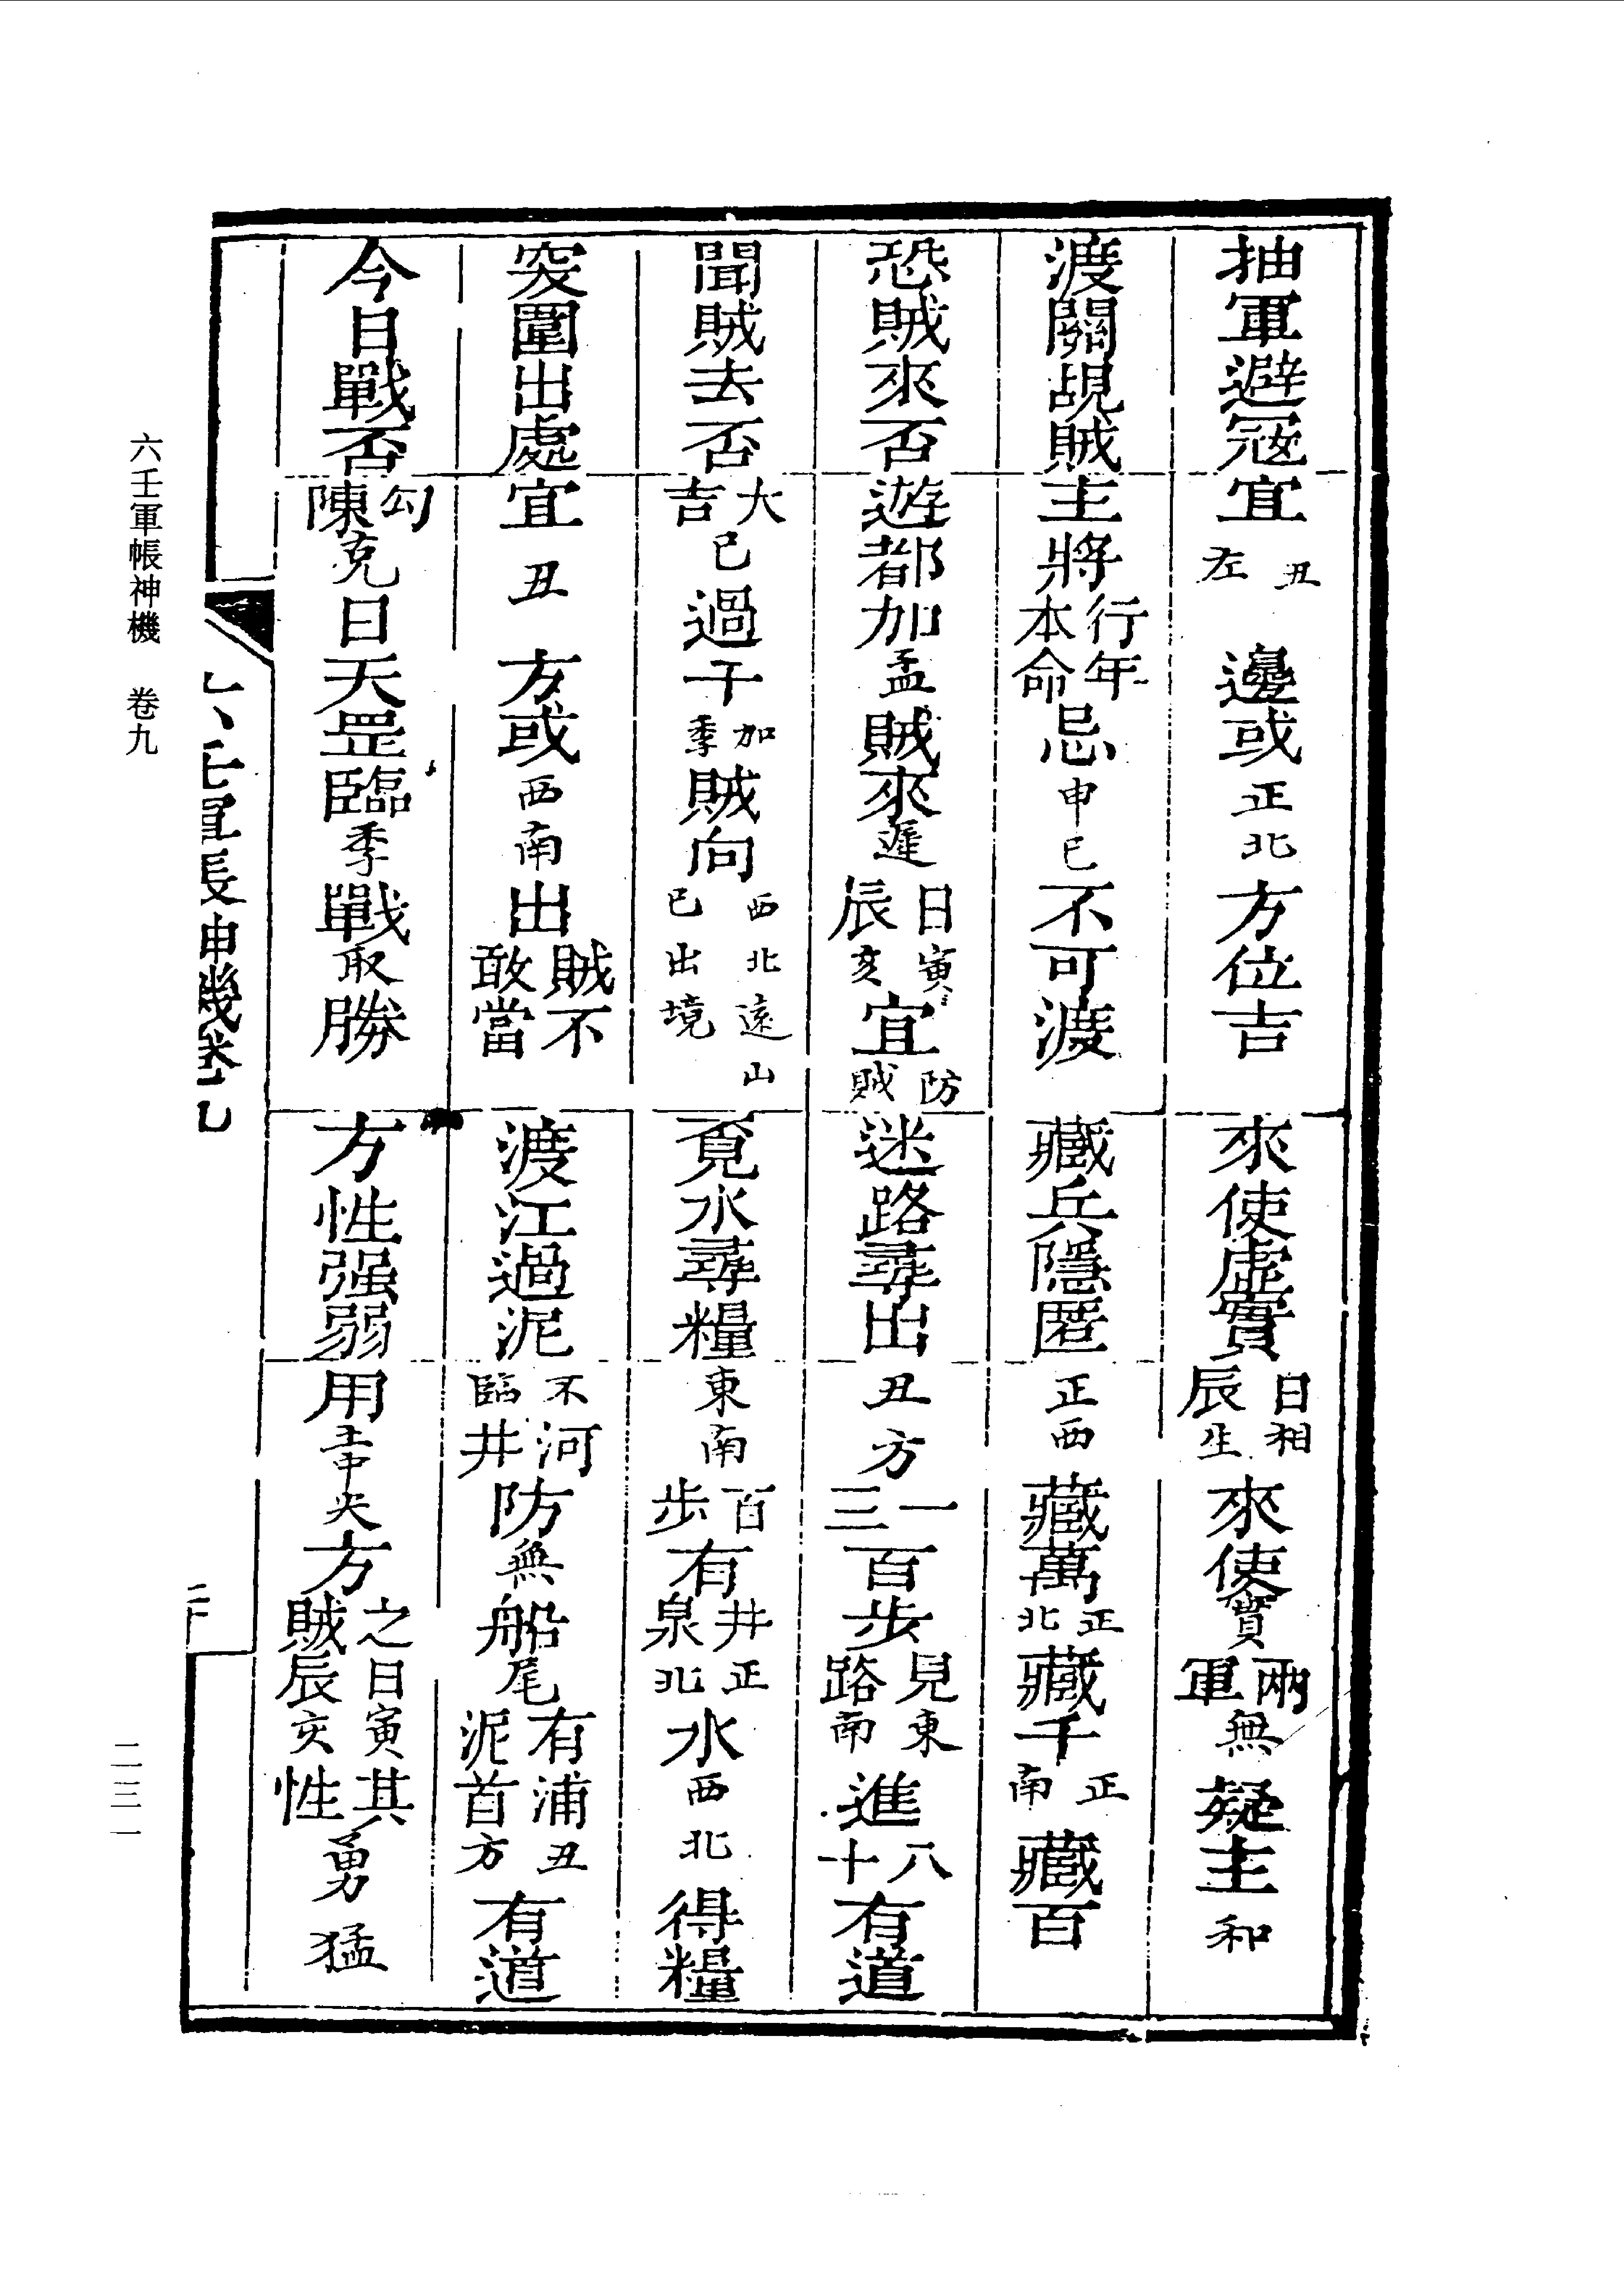 抽軍避寇宜丑左邊或正北方位吉
來使虛實日辰相生來使實兩軍無疑主和
渡關覘賊主將行年本命忌申巳不可渡
藏兵隱匿正西藏萬正北藏千正南藏百
恐賊來否遊都加孟賊來遲日辰寅亥宜防賊
迷路尋出丑方一三百步見路東南進八十有道
聞賊去否大吉已過干加季賊向西北遠山已出境
覓水尋糧東南百步有井泉正北水西北得糧
突圍出處宜丑方或西南出賊不敢當
渡江過泥不臨河井防無船尾有泥浦首丑方有道
今日戰否勾陳克日天罡臨季戰取勝
方性强弱用土中央方之賊日辰寅亥其性勇猛
六壬軍帳神機卷九
二十
六壬軍帳神機 卷九
二三一